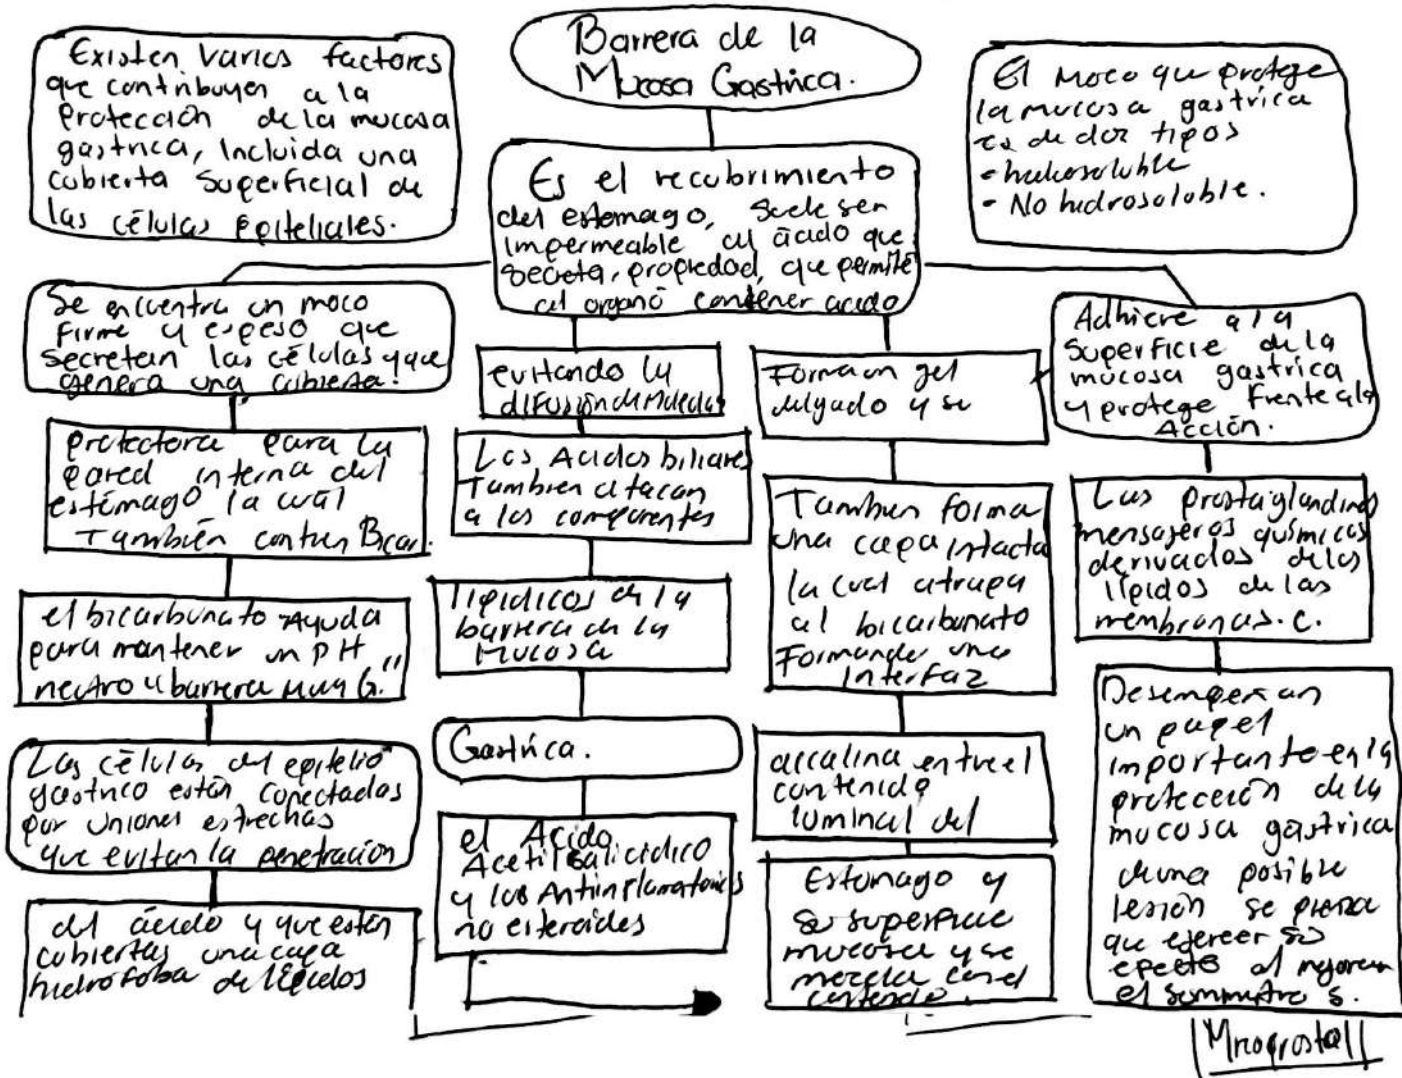 Barrera de la
Mucosa Gastrica.
Existen varios factores
que contribuyen a la
protección de la mucosa
gastrica, Incluida una
cubierta Superficial de
las células epiteliales.
El moco que protege
la mucosa gastrica
es de dos tipos
- hidrosoluble
- No hidrosoluble.
Es el recubrimiento
del estomago, suele ser
impermeable al ácido que
secreta, propiedad, que permite
al organo contener acido
Se encuentra un moco
Firme y espeso que
secretan las células y que
genera una cubierta.
protectora para la
pared interna del
estómago la cual
También contien Bicar.
el bicarbonato Ayuda
para mantener un pH
neutro y barrera muy G."
Las células del epitelio
gastrico están conectadas
por uniones estrechas
que evitan la penetración
del ácido y que estén
cubiertas una capa
hidrófoba de lípidos
evitando la
difusión de moleculas
Los Acidos biliares
Tambien atacan
a los componentes
lipidicos de la
barrera de la
Mucosa
Gastrica.
el Acido
Acetilsalicidico
y los Antiinflamatorios
no esteroides
Forma un gel
delgado y se
Tambien forma
una capa intacta
la cual atrapa
al bicarbonato
Formando una
Interfaz
alcalina entre el
contenido
luminal del
Estomago y
su superficie
mucosa y se
mezcla con el
contenido.
Adhiere a la
superficie de la
mucosa gastrica
y protege frente a la
Acción.
Las prostaglandinas
mensajeros químicos
derivados de los
lípidos de las
membranas. C.
Desempeñan
un papel
importante en la
protección de la
mucosa gástrica
de una posible
lesión se piensa
que ejercer su
efecto al mejorar
el suministro s.